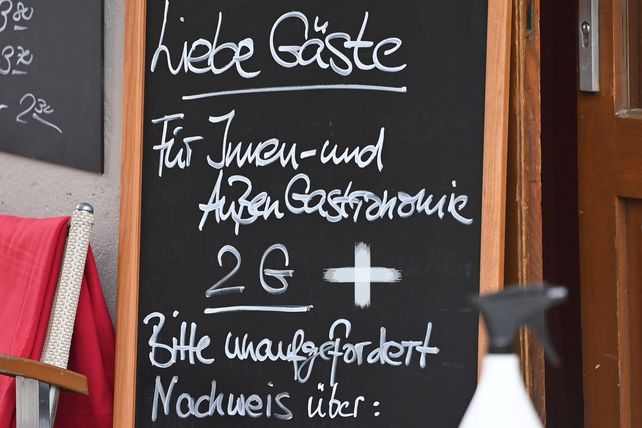 80
3,70
2,30
Liebe Gäste
Für Innen-und
Außen Gastronomie
2 G +
Bitte unaufgefordert
Nachweis über: